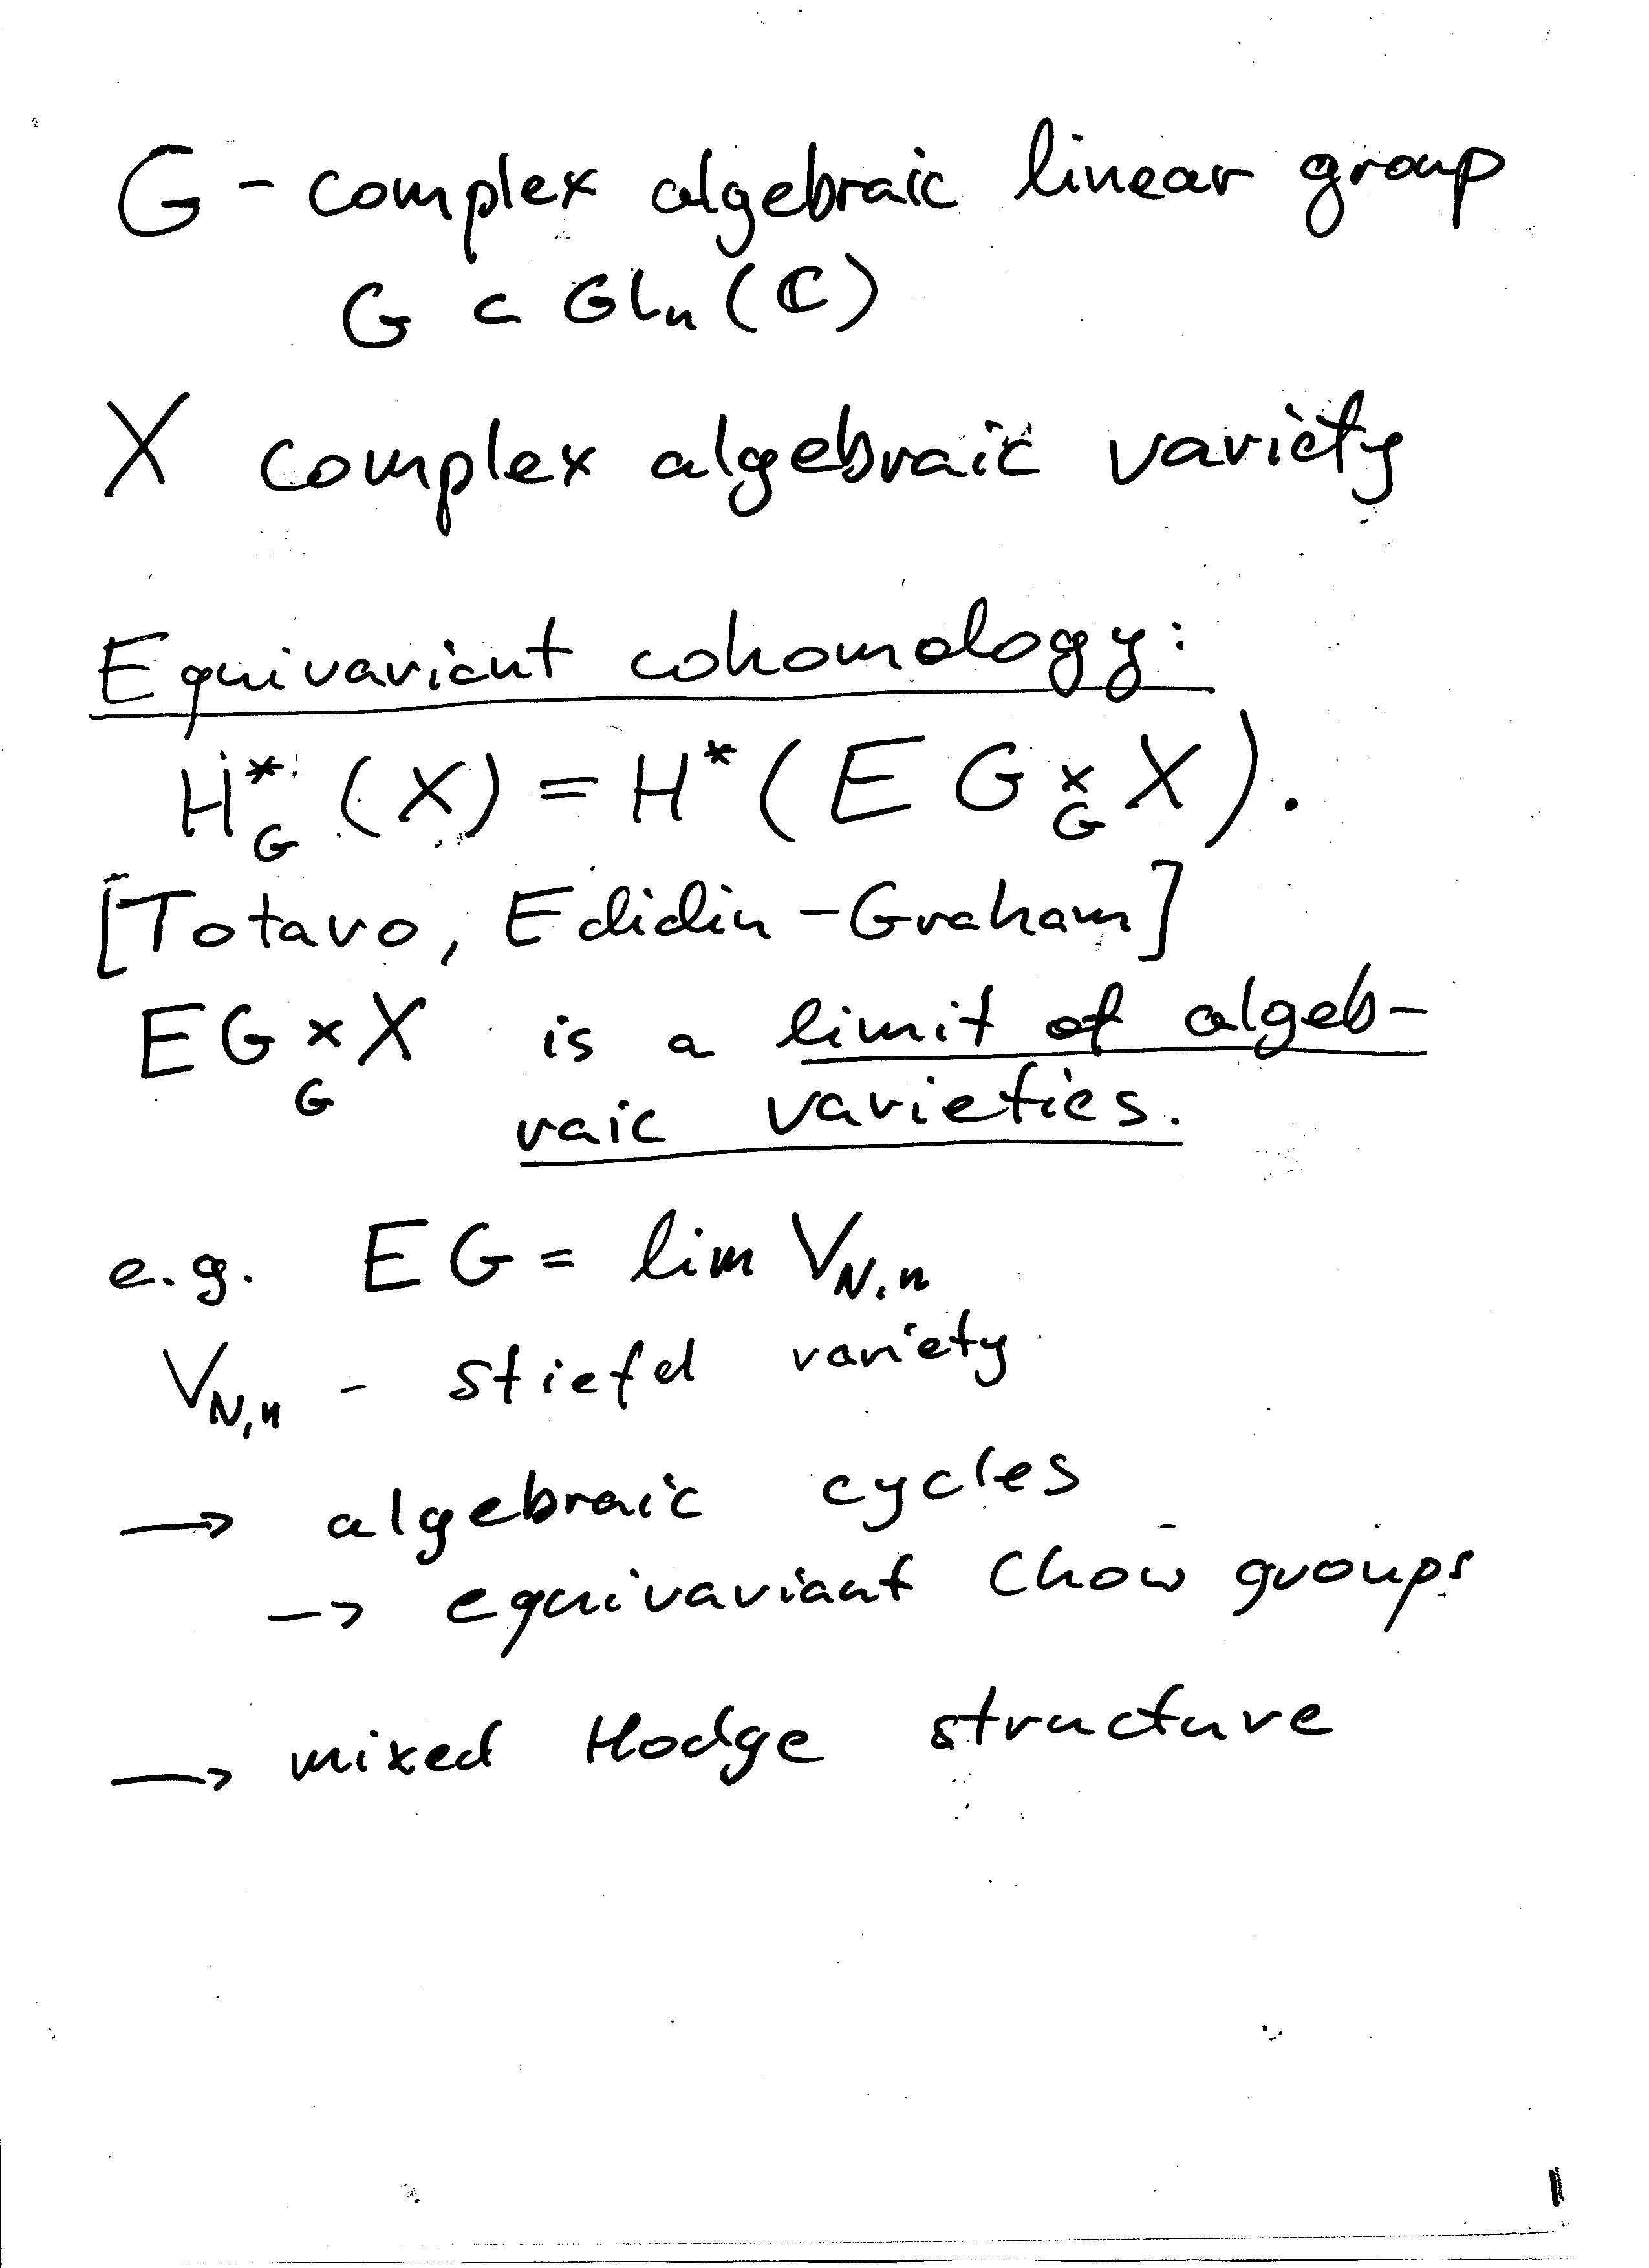 G - complex algebraic linear group
G ⊂ GLn(ℂ)
X complex algebraic variety
Equivariant cohomology:
H*_G(X) = H*(EG ×_G X).
[Totaro, Edidin-Graham]
EG ×_G X is a limit of algeb-
raic varieties.
e.g. EG = lim V_N,n
V_N,n - Stiefel variety
→ algebraic cycles
→ equivariant Chow groups
→ mixed Hodge structure
1